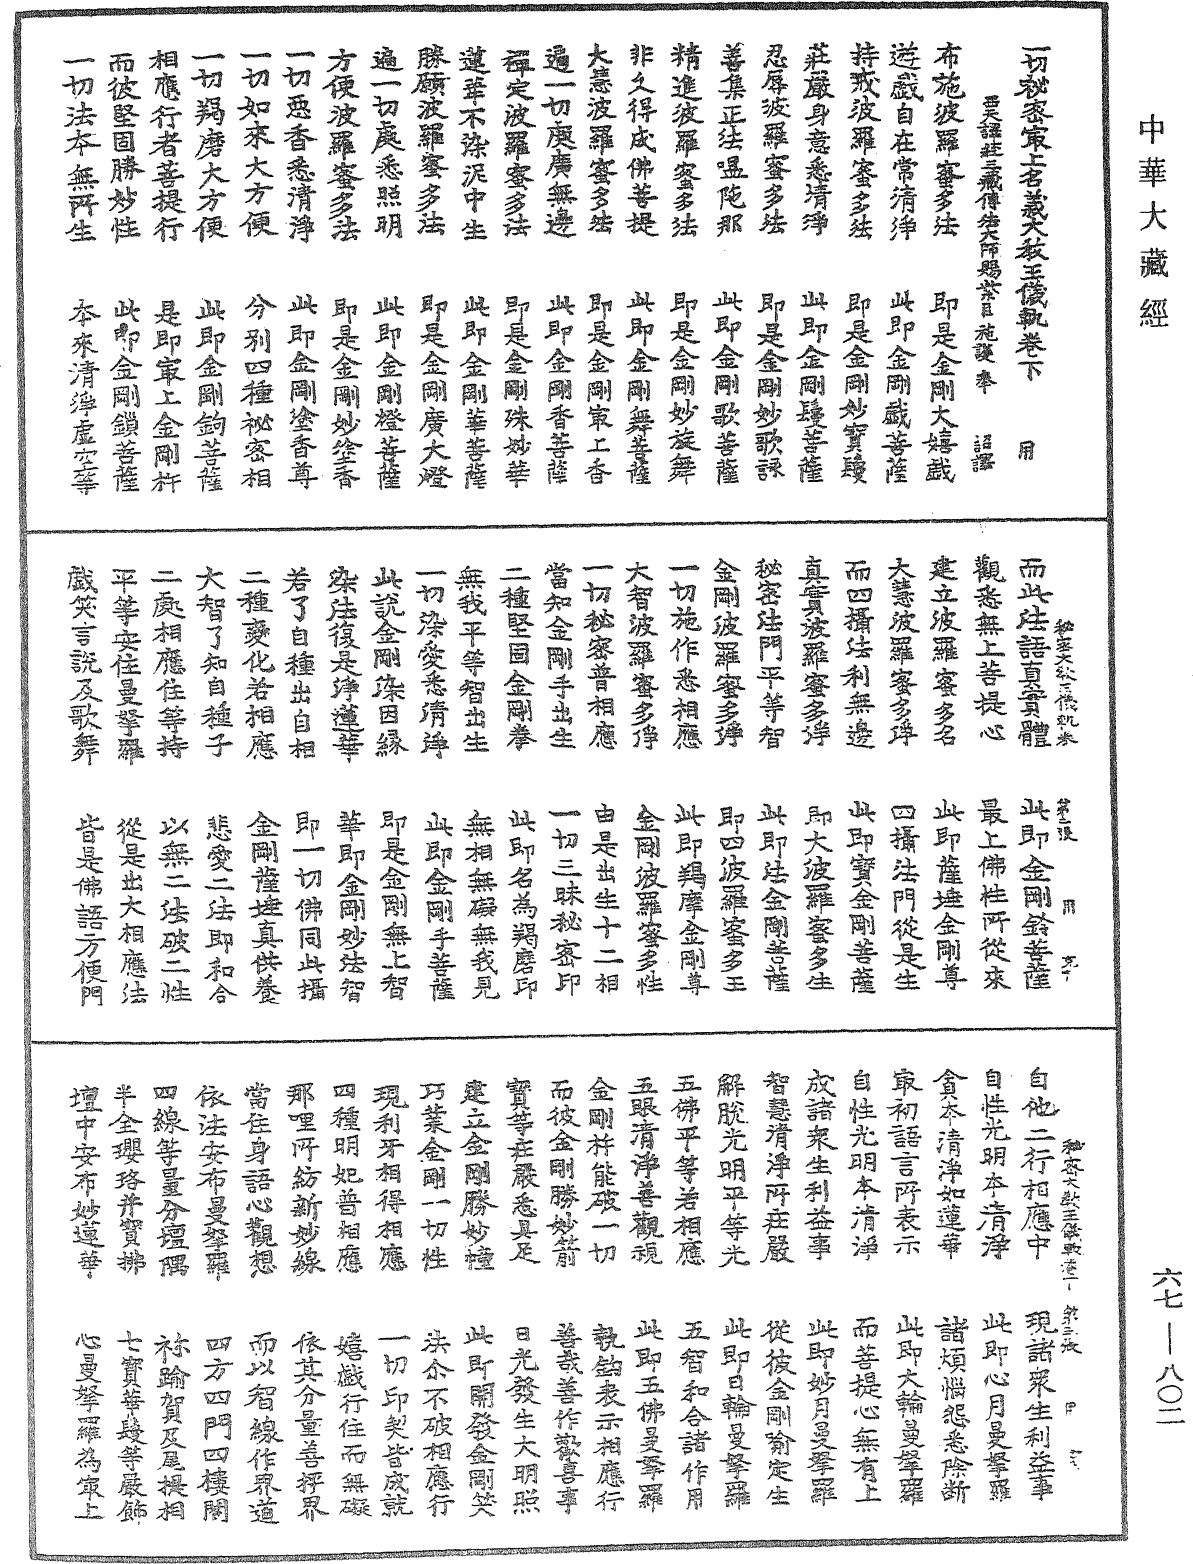 中華大藏經
一切秘密最上名義大教王儀軌卷下 用
西天譯經三藏傳法大師賜紫臣施護奉 詔譯
布施波羅蜜多法 即是金剛大嬉戲
遊戲自在常清淨 此即金剛戲菩薩
持戒波羅蜜多法 即是金剛妙寶鬘
莊嚴身意悉清淨 此即金剛鬘菩薩
忍辱波羅蜜多法 即是金剛妙歌詠
善集正法嗢陁那 此即金剛歌菩薩
精進波羅蜜多法 即是金剛妙旋舞
非久得成佛菩提 此即金剛舞菩薩
大慧波羅蜜多法 即是金剛最上香
遍一切處廣無邊 此即金剛香菩薩
禪定波羅蜜多法 即是金剛殊妙華
蓮華不染泥中生 此即金剛華菩薩
勝願波羅蜜多法 即是金剛廣大燈
遍一切處悉照明 此即金剛燈菩薩
方便波羅蜜多法 即是金剛妙塗香
一切惡香悉清淨 此即金剛塗香尊
一切如來大方便 分別四種祕密相
一切羯磨大方便 此即金剛鉤菩薩
相應行者菩提行 是即最上金剛杵
而彼堅固勝妙性 此即金剛鎖菩薩
一切法本無所生 本來清淨虛空等
秘密大教王儀軌卷 第二張 用
而此法語真實體 此即金剛鈴菩薩
觀悉無上菩提心 最上佛性所從來
建立波羅蜜多名 此即薩埵金剛尊
大慧波羅蜜多淨 四攝法門從是生
而四攝法利無邊 此即寶金剛菩薩
真實波羅蜜多淨 即大波羅蜜多生
秘密法門平等智 此即法金剛菩薩
金剛波羅蜜多淨 即四波羅蜜多王
一切施作悉相應 此即羯摩金剛尊
大智波羅蜜多淨 金剛波羅蜜多性
一切秘密普相應 由是出生十二相
當知金剛手出生 一切三昧秘密印
二種堅固金剛拳 此即名為羯磨印
無我平等智出生 無相無礙無我見
一切染愛悉清淨 此即金剛手菩薩
此說金剛染因緣 即是金剛無上智
染法復是淨蓮華 華即金剛妙法智
若了自種出自相 即一切佛同此攝
二種變化若相應 金剛薩埵真供養
大智了知自種子 悲愛二法即和合
二處相應住等持 以無二法破二性
平等安住曼拏羅 從是出大相應法
戲笑言說及歌舞 皆是佛語方便門
秘密大教王儀軌卷下 第三張 用
自他二行相應中 現諸眾生利益事
自性光明本清淨 此即心月曼拏羅
貪本清淨如蓮華 諸煩惱怨悉除斷
最初語言所表示 此即大輪曼拏羅
自性光明本清淨 而菩提心無有上
成諸眾生利益事 此即妙月曼拏羅
智慧清淨所莊嚴 從彼金剛喻定生
解脫光明平等光 此即日輪曼拏羅
五佛平等若相應 五智和合諸作用
五眼清淨善觀視 此即五佛曼拏羅
金剛杵能破一切 執鉤表示相應行
而彼金剛勝妙箭 善哉善作歡喜事
寶等莊嚴悉具足 日光發生大明照
建立金剛勝妙幢 此即開發金剛笑
巧業金剛一切性 法尒不破相應行
現利牙相得相應 一切印契皆成就
四種明妃普相應 嬉戲行住而無礙
那哩所紡新妙線 依其分量善抨界
當住身語心觀想 而以智線作界道
依法安布曼拏羅 四方四門四樓閣
四線等量分壇隅 祢踰賀及尾提相
半全瓔珞并寶拂 七寶華鬘等嚴飾
壇中安布妙蓮華 心曼拏羅為最上
六七—八〇二